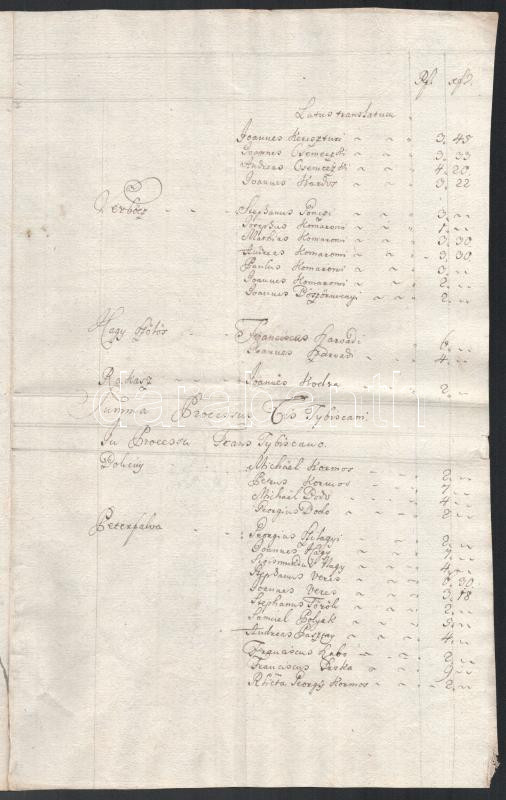 Rf. xfr.
Latus translatum
Joannes Kereszturi 3. 45
Joannes Csemeczki 3. 33
Andreas Csemeczki 4. 20
Joannes Kardos 3. 22
Verbőcz Stephanus Pöncsi 3. --
Josephus Komaromi 1. --
Mathias Komaromi 3. 30
Andreas Komaromi 3. 30
Paulus Komaromi 3. --
Joannes Komaromi 2. --
Joannes Böszörmenyi 2. --
Nagy Szőlős Franciscus Harsadi 6. --
Joannes 4. --
Rakasz Joannes Kodra 2. --
Summa Processus Cis Tybiscani
In Processu Trans Tybiscano
Michaël Kormos 2. --
Petrus Kormos 7. --
Michaël Dobo 4. --
Georgius Dobo 2. --
Peterfalva Georgius Szilagyi 2. --
Joannes Nagy 7. --
Sigismundus Nagy 4. --
Stephanus Veres 6. 30
Joannes Veres 3. 18
Stephanus Török 2. --
Samuel Polyak 5. --
Andreas 4. --
Franciscus Szabo 2. --
Franciscus 9. --
Relicta Georgÿ Kormos 2. --
darabanth